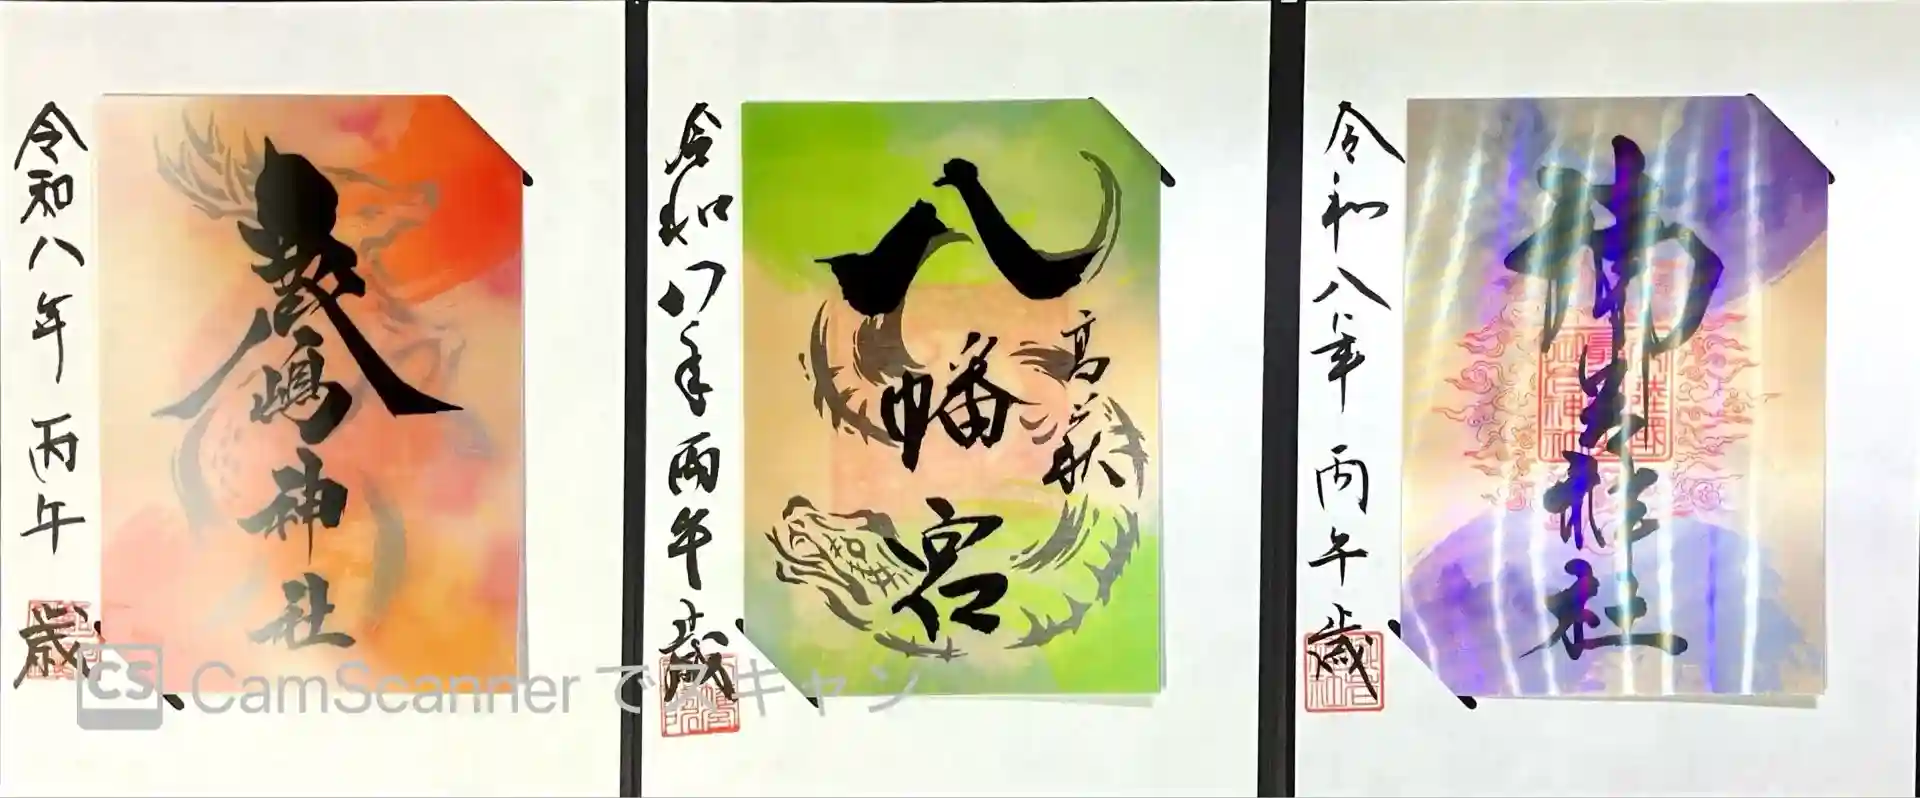 嚴嶋神社
令和八年 丙午 歳
高萩
八幡宮
令和八年 丙午 歳
御岩神社
令和八年 丙午 歳
CS CamScanner でスキャン